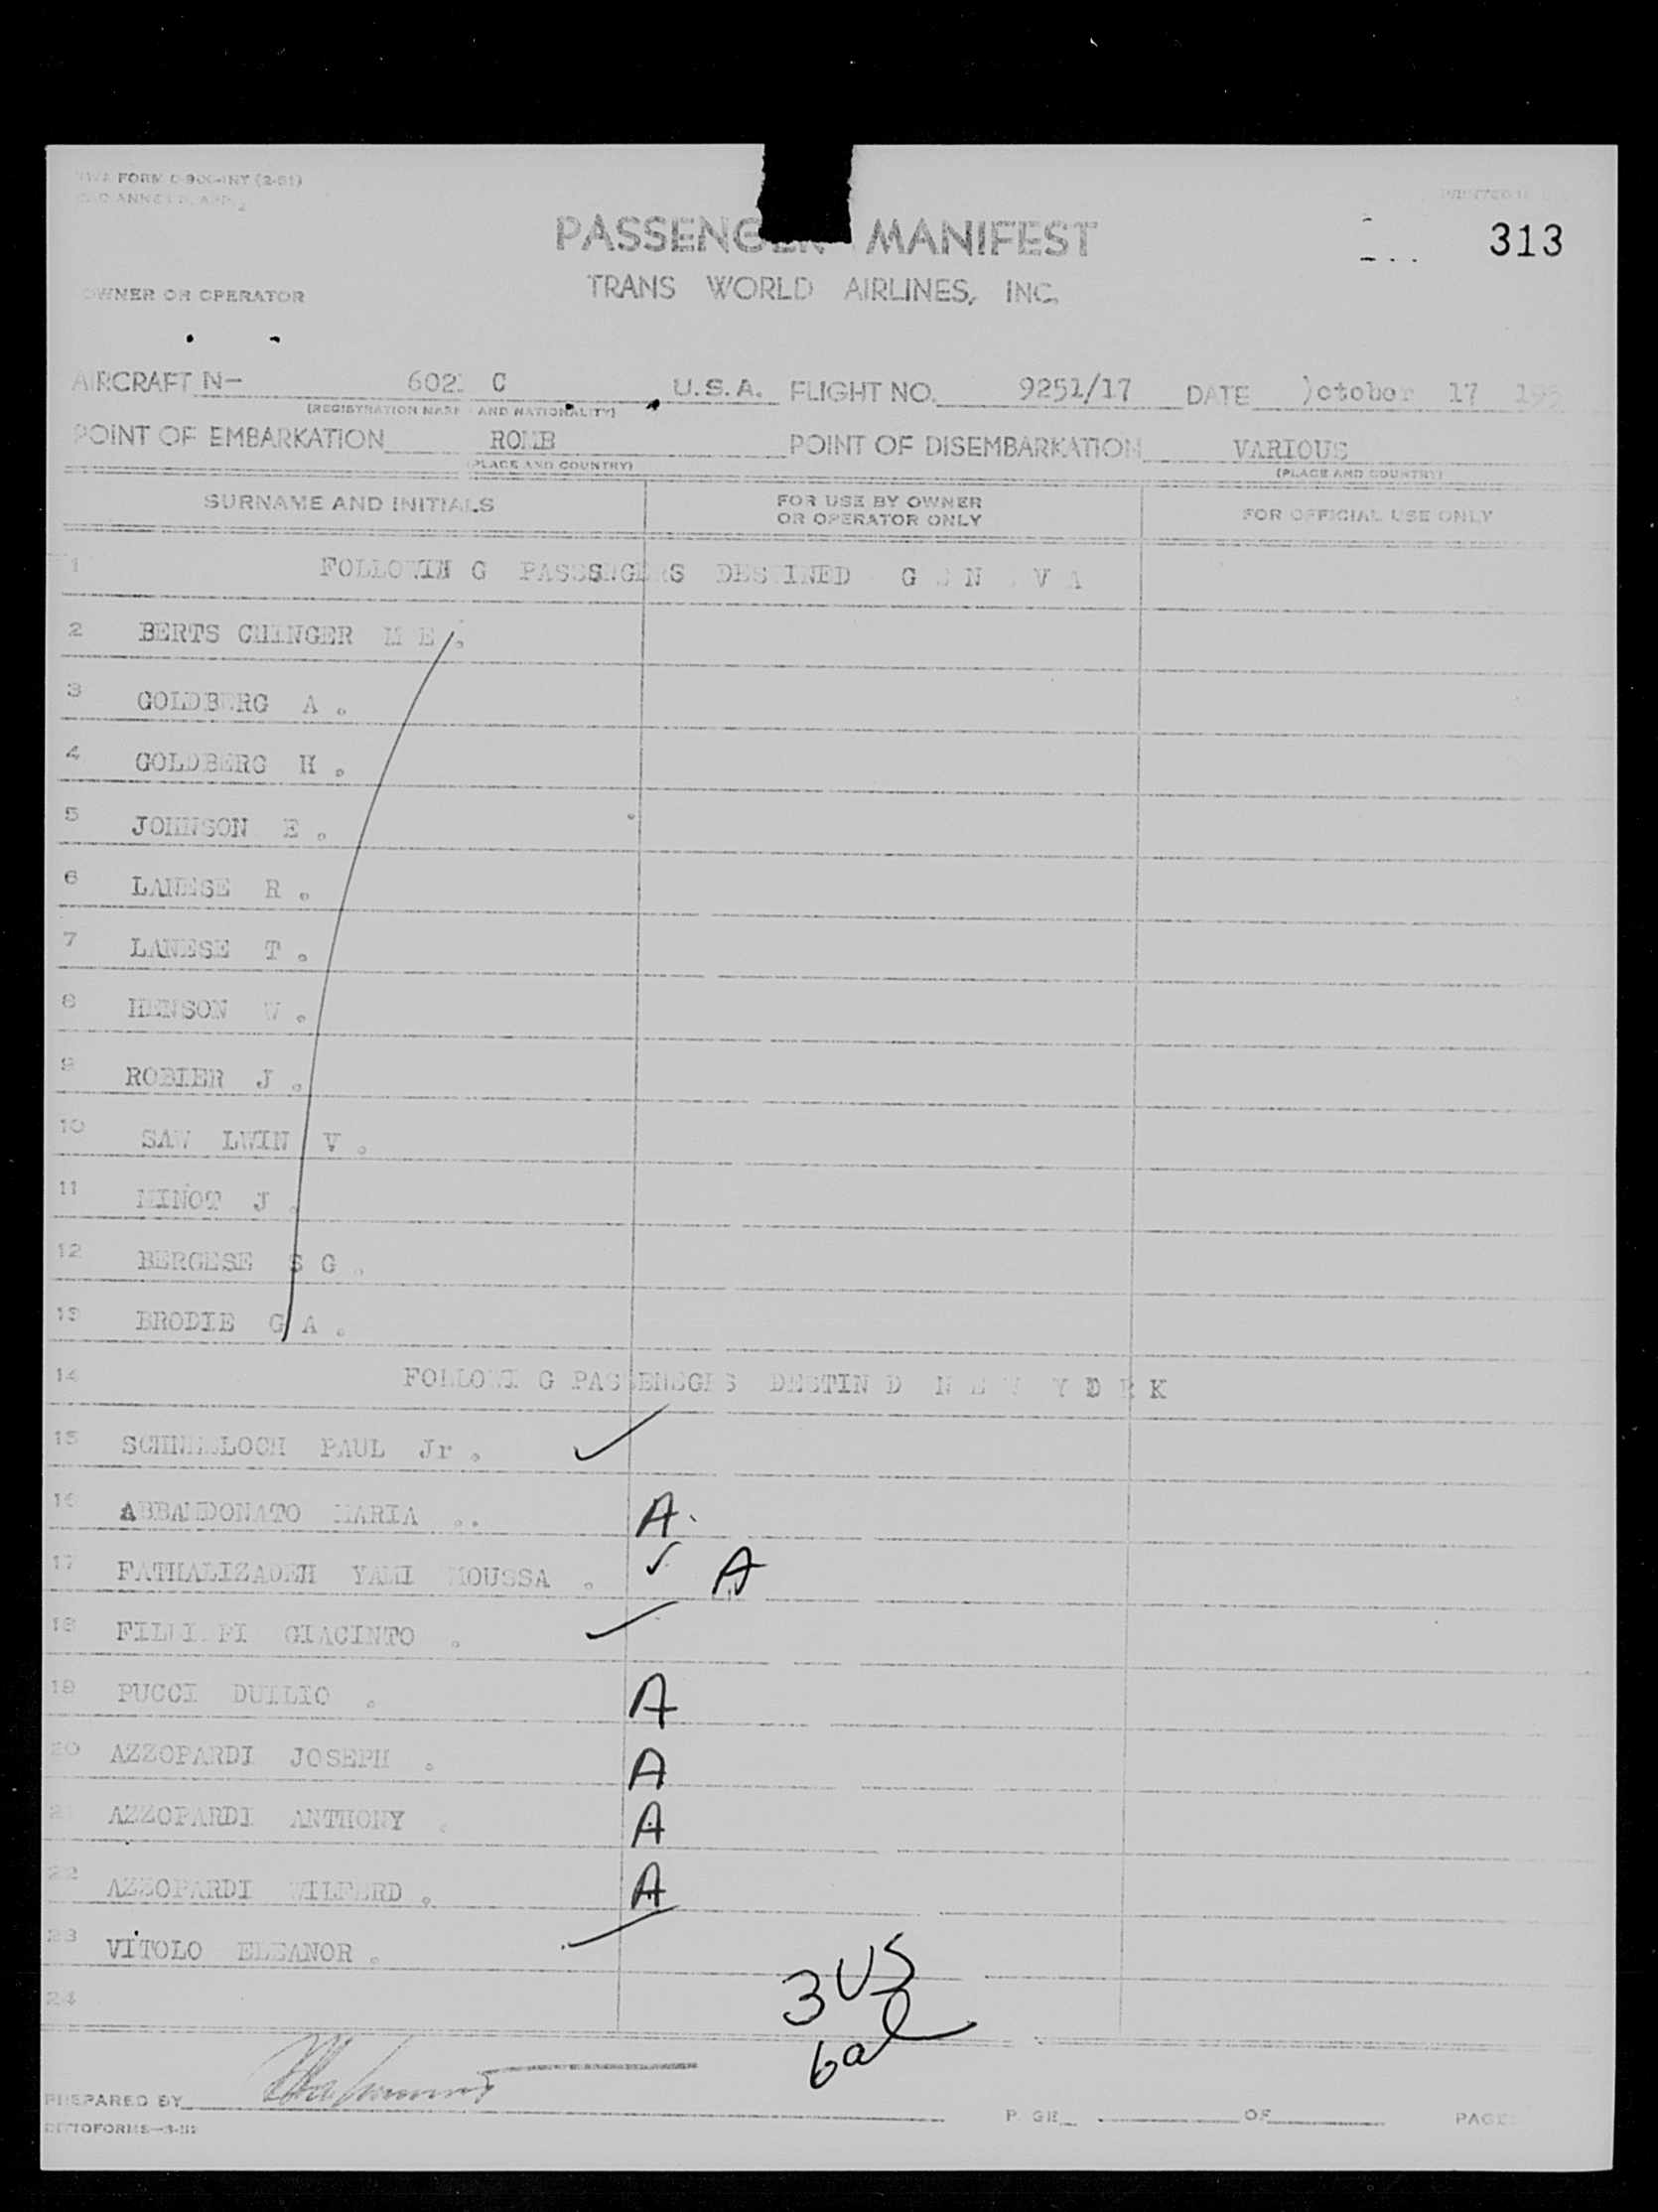 FORM 0-900-INT (2-51)
313
PASSENGER MANIFEST
TRANS WORLD AIRLINES, INC.
OWNER OR OPERATOR
AIRCRAFT N- 602 C U.S.A. FLIGHT NO. 9251/17 DATE October 17 195
(REGISTRATION MARK AND NATIONALITY)
POINT OF EMBARKATION ROME POINT OF DISEMBARKATION VARIOUS
(PLACE AND COUNTRY) (PLACE AND COUNTRY)
SURNAME AND INITIALS FOR USE BY OWNER OR OPERATOR ONLY FOR OFFICIAL USE ONLY
1 FOLLOWIN G PASSSNGERS DESTINED G E N E V A
2 BERTS CHINGER M E .
3 GOLDBERG A .
4 GOLDBERG H .
5 JOHNSON E .
6 LANESE R .
7 LANESE T .
8 HENSON W .
9 ROBIER J .
10 SAW LWIN V .
11 MINOT J .
12 BERGESE S G .
13 BRODIE G A .
14 FOLLOWI G PASSENSGRS DESTIN D N E W Y O R K
15 SCHNEELOCH PAUL Jr . ✓
16 ABBANDONATO MARIA .. A
17 FATHALIZADEH YAMI MOUSSA . ✓ A
18 FILLIPPI GIACINTO . ✓
19 PUCCI DUILIO . A
20 AZZOPARDI JOSEPH . A
21 AZZOPARDI ANTHONY . A
22 AZZOPARDI WILFERD . A
23 VITOLO ELEANOR . ✓
24
3 US
6 al
PREPARED BY
P. GR. OF PAGES
DITTOFORMS